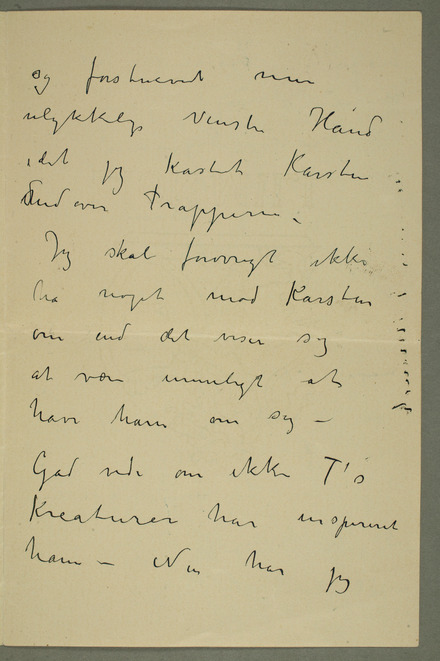 og forstuvet min
ulykkelige venstre Hånd
idet jeg kastet Karsten
ud over Trapperne.
Jeg skal forøvrigt ikke
ha noget mod Karsten
om end det viser sig
at være umuligt at
have ham om sig –
Gad vide om ikke T's
Kreaturer har inspireret
ham – Nu har jeg